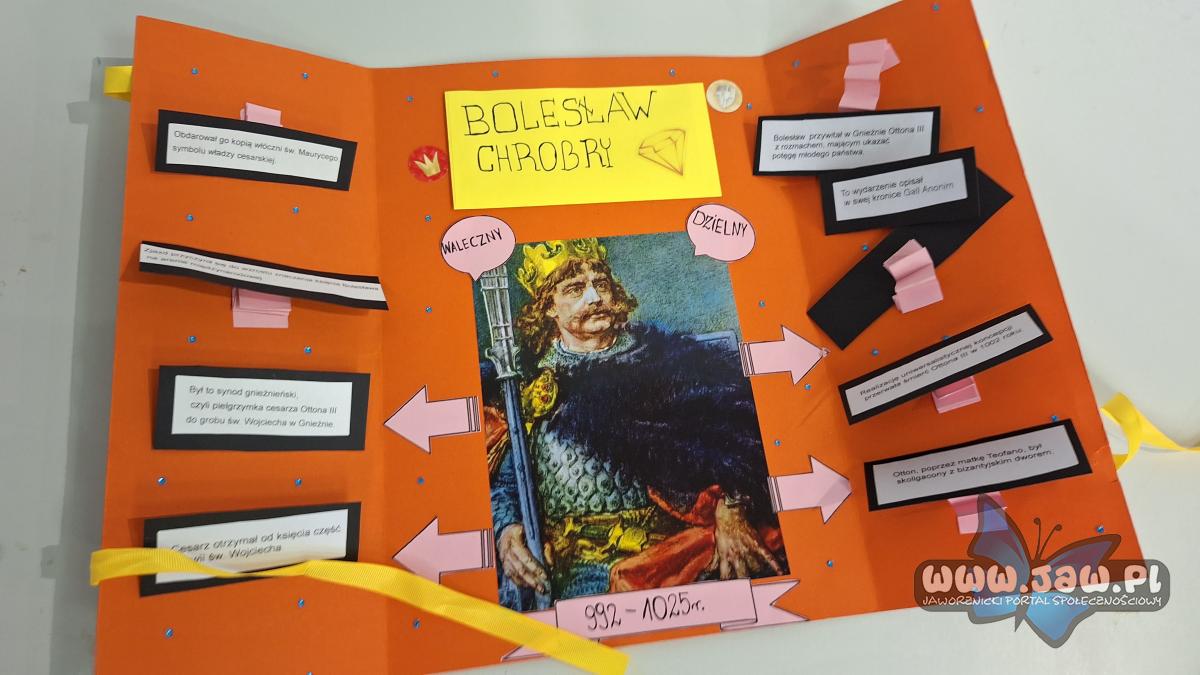 BOLESŁAW
CHROBRY
WALECZNY
DZIELNY
Obdarował go kopią włóczni św. Maurycego
symbolu władzy cesarskiej.
Zjazd przyczynił się do wzrostu znaczenia księcia Bolesława
na arenie międzynarodowej.
Był to synod gnieźnieński,
czyli pielgrzymka cesarza Ottona III
do grobu św. Wojciecha w Gnieźnie.
Cesarz otrzymał od księcia część
św. Wojciecha
Bolesław przywitał w Gnieźnie Ottona III
z rozmachem, mającym ukazać
potęgę młodego państwa.
To wydarzenie opisał
w swej kronice Gall Anonim
Realizację uniwersalistycznej koncepcji
przerwała śmierć Ottona III w 1002 roku.
Otton, poprzez matkę Teofano, był
skoligacony z bizantyjskim dworem.
992 - 1025r.
www.jaw.pl
JAWORZNICKI PORTAL SPOŁECZNOŚCIOWY